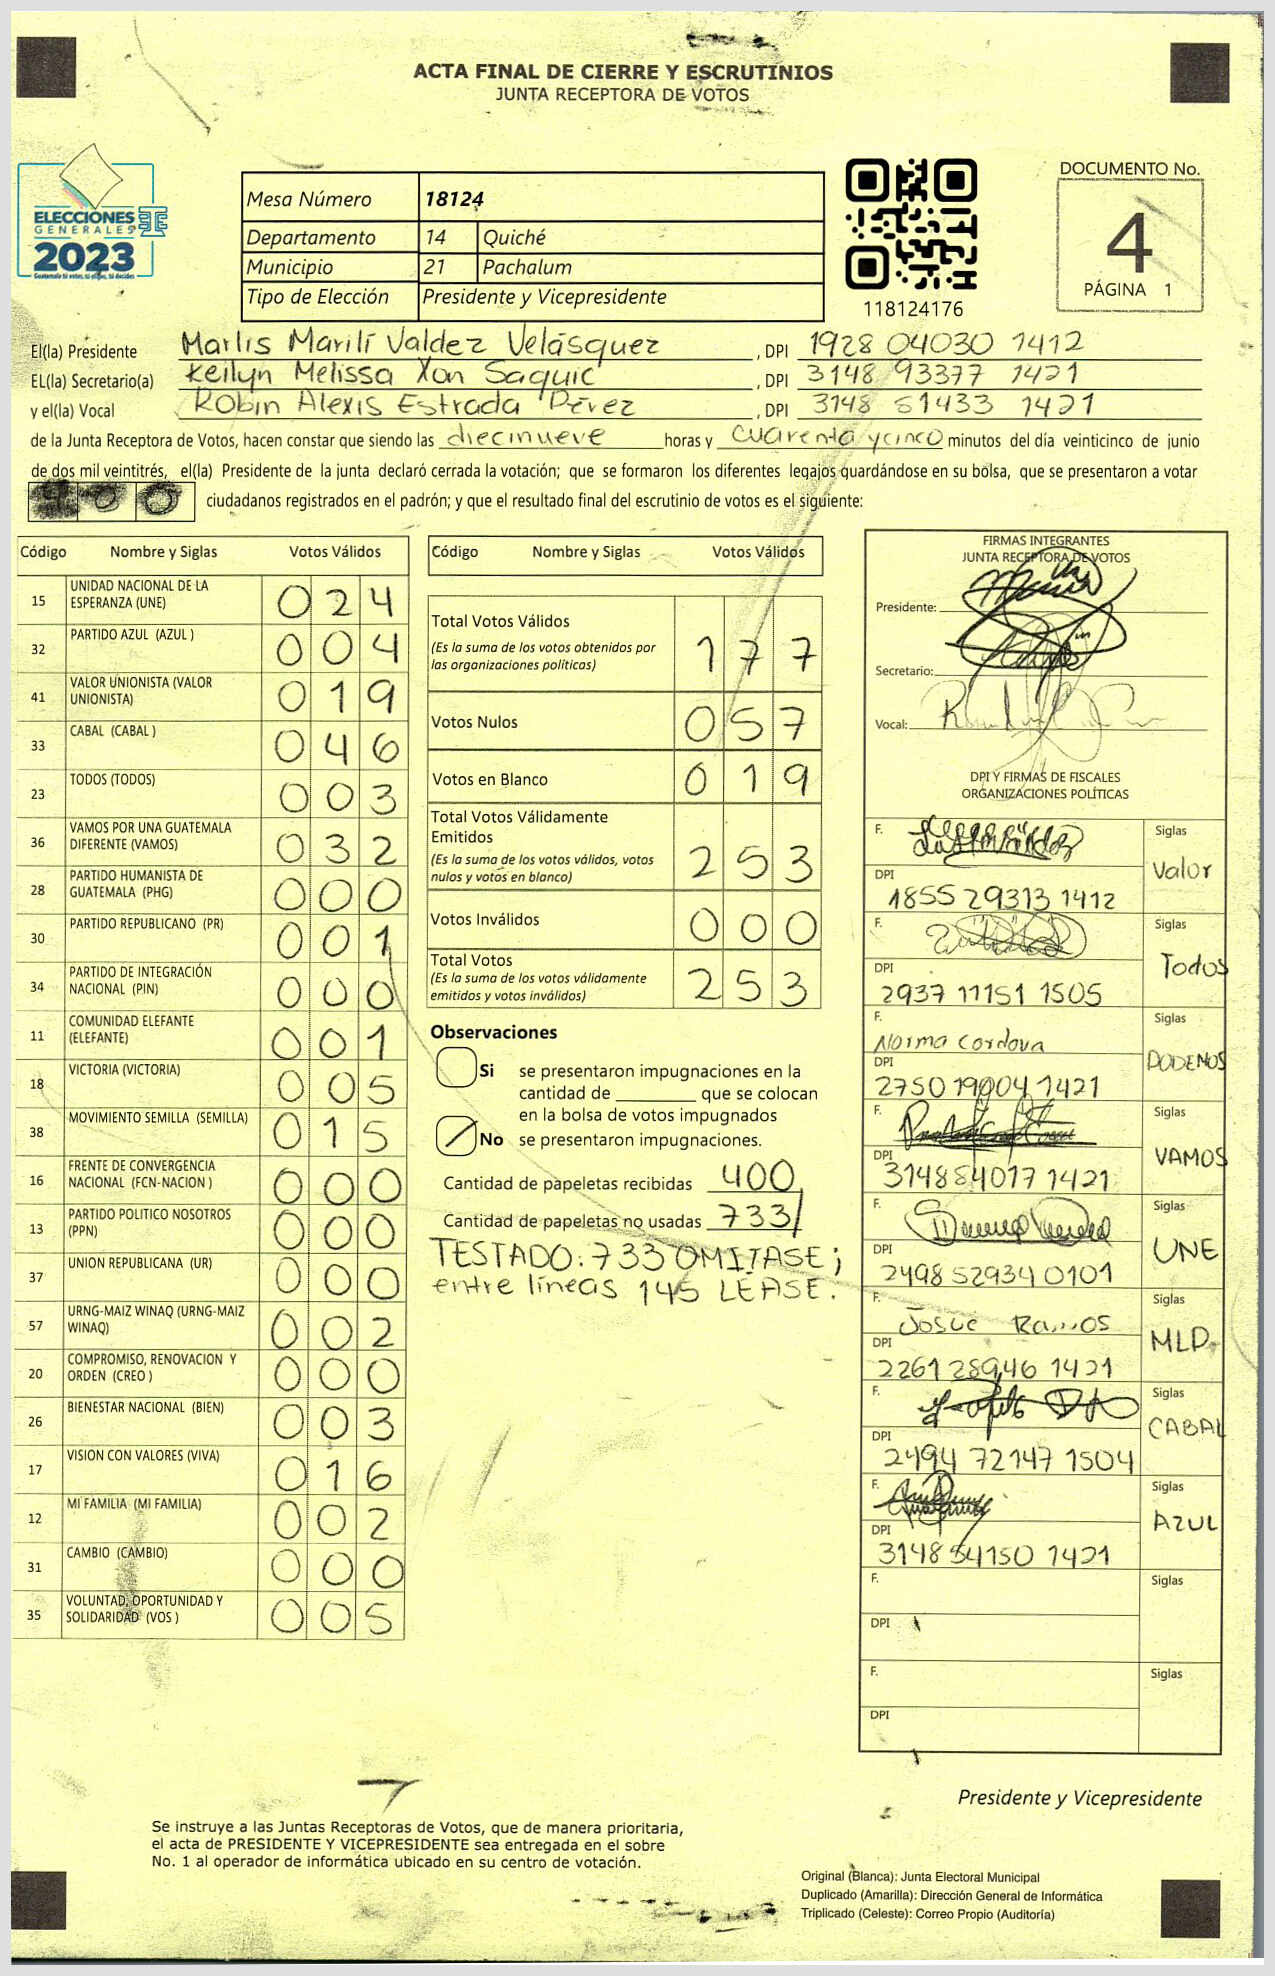 ACTA FINAL DE CIERRE Y ESCRUTINIOS
JUNTA RECEPTORA DE VOTOS
ELECCIONES
GENERALES
2023
Guatemala tú votas, tú eliges, tú decides
Mesa Número 18124
Departamento 14 Quiché
Municipio 21 Pachalum
Tipo de Elección Presidente y Vicepresidente
118124176
DOCUMENTO No.
4
PÁGINA 1
El(la) Presidente Marlis Marilí Valdez Velásquez , DPI 1928 04030 1412
EL(la) Secretario(a) Keilyn Melissa Xon Saquic , DPI 3148 93377 1421
y el(la) Vocal Robin Alexis Estrada Pérez , DPI 3148 51433 1421
de la Junta Receptora de Votos, hacen constar que siendo las diecinueve horas y cuarenta y cinco minutos del día veinticinco de junio
de dos mil veintitrés, el(la) Presidente de la junta declaró cerrada la votación; que se formaron los diferentes legajos guardándose en su bolsa, que se presentaron a votar
ciudadanos registrados en el padrón; y que el resultado final del escrutinio de votos es el siguiente:
Código Nombre y Siglas Votos Válidos
15 UNIDAD NACIONAL DE LA ESPERANZA (UNE) 024
32 PARTIDO AZUL (AZUL ) 004
41 VALOR UNIONISTA (VALOR UNIONISTA) 019
33 CABAL (CABAL ) 046
23 TODOS (TODOS) 003
36 VAMOS POR UNA GUATEMALA DIFERENTE (VAMOS) 032
28 PARTIDO HUMANISTA DE GUATEMALA (PHG) 000
30 PARTIDO REPUBLICANO (PR) 001
34 PARTIDO DE INTEGRACIÓN NACIONAL (PIN) 000
11 COMUNIDAD ELEFANTE (ELEFANTE) 001
18 VICTORIA (VICTORIA) 005
38 MOVIMIENTO SEMILLA (SEMILLA) 015
16 FRENTE DE CONVERGENCIA NACIONAL (FCN-NACION ) 000
13 PARTIDO POLITICO NOSOTROS (PPN) 000
37 UNION REPUBLICANA (UR) 000
57 URNG-MAIZ WINAQ (URNG-MAIZ WINAQ) 002
20 COMPROMISO, RENOVACION Y ORDEN (CREO ) 000
26 BIENESTAR NACIONAL (BIEN) 003
17 VISION CON VALORES (VIVA) 016
12 MI FAMILIA (MI FAMILIA) 002
31 CAMBIO (CAMBIO) 000
35 VOLUNTAD, OPORTUNIDAD Y SOLIDARIDAD (VOS ) 005
Código Nombre y Siglas Votos Válidos
Total Votos Válidos
(Es la suma de los votos obtenidos por
las organizaciones políticas) 177
Votos Nulos 057
Votos en Blanco 019
Total Votos Válidamente
Emitidos
(Es la suma de los votos válidos, votos
nulos y votos en blanco) 253
Votos Inválidos 000
Total Votos
(Es la suma de los votos válidamente
emitidos y votos inválidos) 253
Observaciones
Si se presentaron impugnaciones en la
cantidad de que se colocan
en la bolsa de votos impugnados
No se presentaron impugnaciones.
Cantidad de papeletas recibidas 400
Cantidad de papeletas no usadas 733
TESTADO: 733 OMITASE;
entre líneas 145 LEASE.
FIRMAS INTEGRANTES
JUNTA RECEPTORA DE VOTOS
Presidente:
Secretario:
Vocal:
DPI Y FIRMAS DE FISCALES
ORGANIZACIONES POLÍTICAS
F. Siglas
Valor
DPI
1855 29313 1412
F. Siglas
Todos
DPI
2937 11151 1505
F. Norma Cordova Siglas
PODEMOS
DPI
2750 19004 1421
F. Siglas
VAMOS
DPI
3148 84017 1421
F. Siglas
UNE
DPI
2498 52934 0101
F. Josue Ramos Siglas
MLP.
DPI
2261 28946 1421
F. Siglas
CABAL
DPI
2494 72147 1504
F. Siglas
AZUL
DPI
3148 54150 1421
F. Siglas
DPI
F. Siglas
DPI
Presidente y Vicepresidente
Se instruye a las Juntas Receptoras de Votos, que de manera prioritaria,
el acta de PRESIDENTE Y VICEPRESIDENTE sea entregada en el sobre
No. 1 al operador de informática ubicado en su centro de votación.
Original (Blanca): Junta Electoral Municipal
Duplicado (Amarilla): Dirección General de Informática
Triplicado (Celeste): Correo Propio (Auditoría)